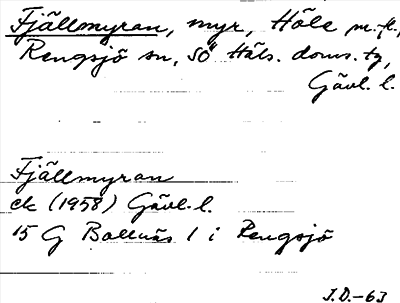 Fjällmyran, myr, Höle m.fl.,
Rengsjö sn, SÖ Häls. doms. tg,
Gävl. l.
Fjällmyran
ek (1958) Gävl. l.
15 G Bollnäs 1 i Rengsjö
J.D.-63